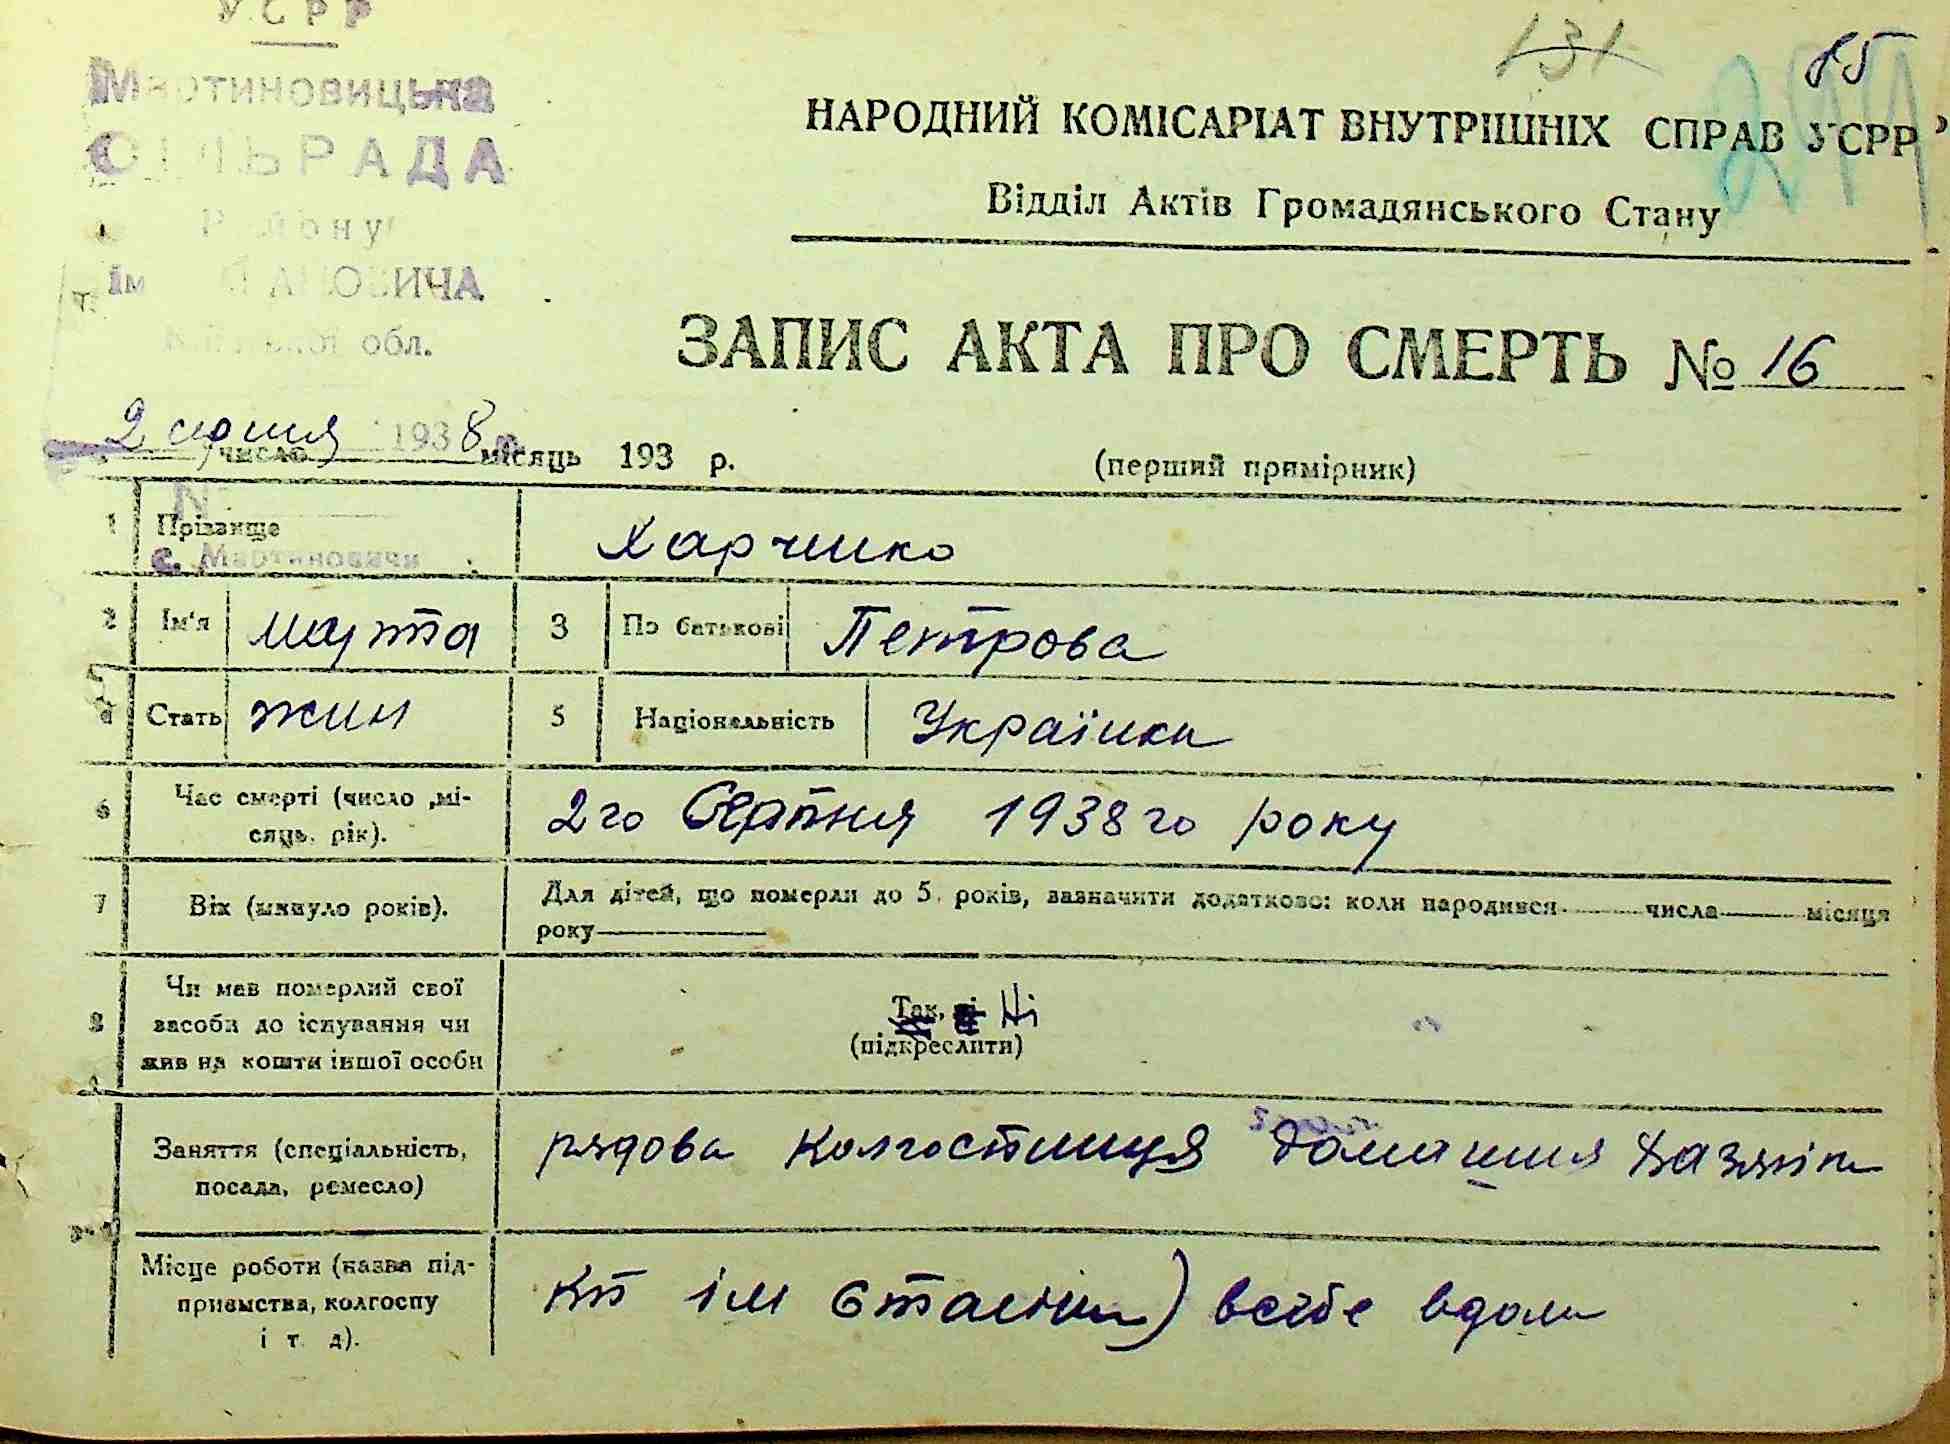 УСРР
Мартиновицька
СІЛЬРАДА
Району
Ім. КАГАНОВИЧА
Київської обл.
131 85
НАРОДНИЙ КОМІСАРІАТ ВНУТРІШНІХ СПРАВ УСРР
Відділ Актів Громадянського Стану
ЗАПИС АКТА ПРО СМЕРТЬ № 16
2 серпня 1938
число місяць 193 р.
(перший примірник)
№
1 Прізвище Харченко
с. Мартиновичи
2 Ім'я Марта 3 По батькові Петрова
4 Стать жин 5 Національність Українка
6 Час смерті (число ,мі-
сяць, рік). 2го Серпня 1938го року
7 Вік (минуло років). Для дітей, що померли до 5. років, зазначити додатково: коли народився числа місяця
року
8 Чи мав померлий свої
засоби до існування чи
жив на кошти іншої особи
Так, ні Ні
(підкреслити)
Заняття (спеціальність,
посада, ремесло) рядова колгостниця домашня
Місце роботи (назва під-
приємства, колгоспу
і т. д). ім Сталіна) всебе вдома